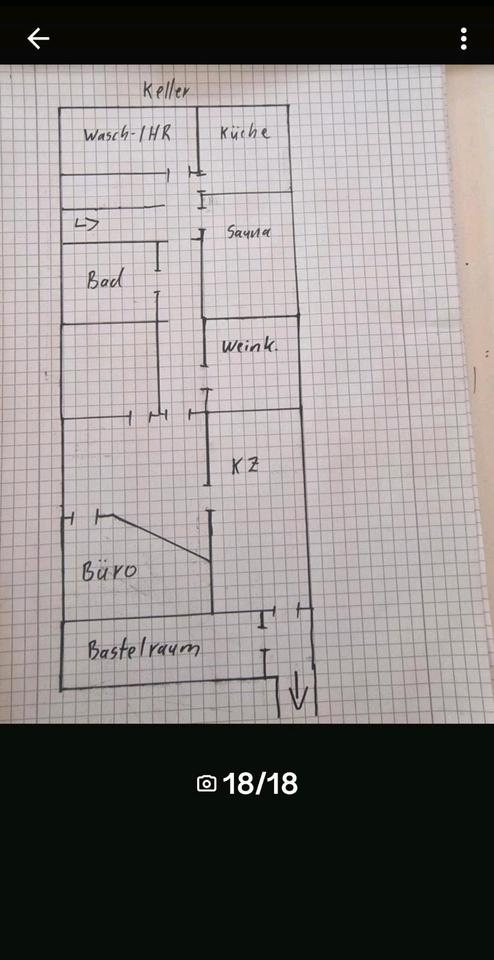 Keller
Wasch-/HR
Küche
Sauna
Bad
Weink.
KZ
Büro
Bastelraum
18/18